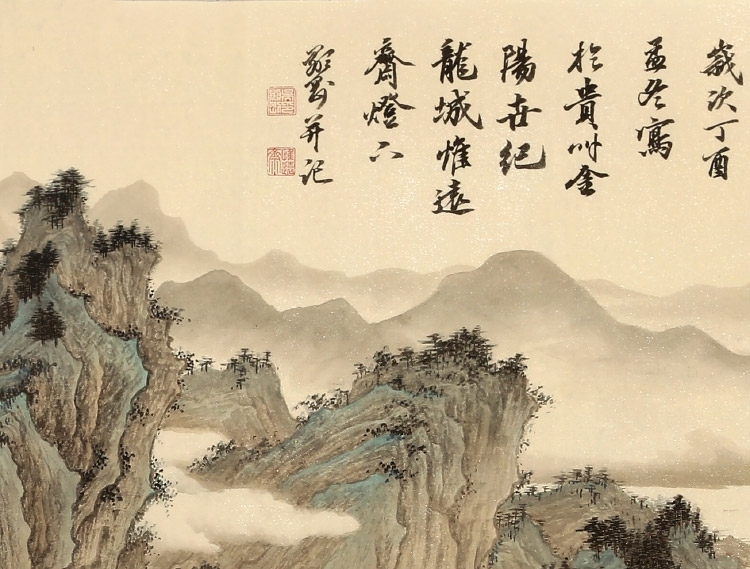 歲次丁酉
孟冬寫
於貴州金
陽世紀
龍城惟遠
齋燈下
并記